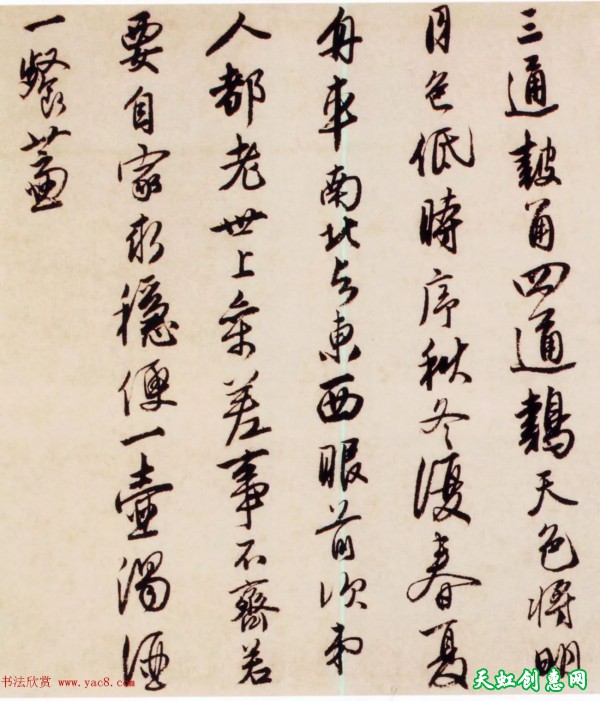 三通皷角四通鷄天色將明
月色低時序秋冬復春夏
舟車南北与東西眼前次第
人都老世上參差事不齊若
要自家求穩便一壺濁酒
一餐虀
书法欣赏 www.yac8.com
天虹创惠网